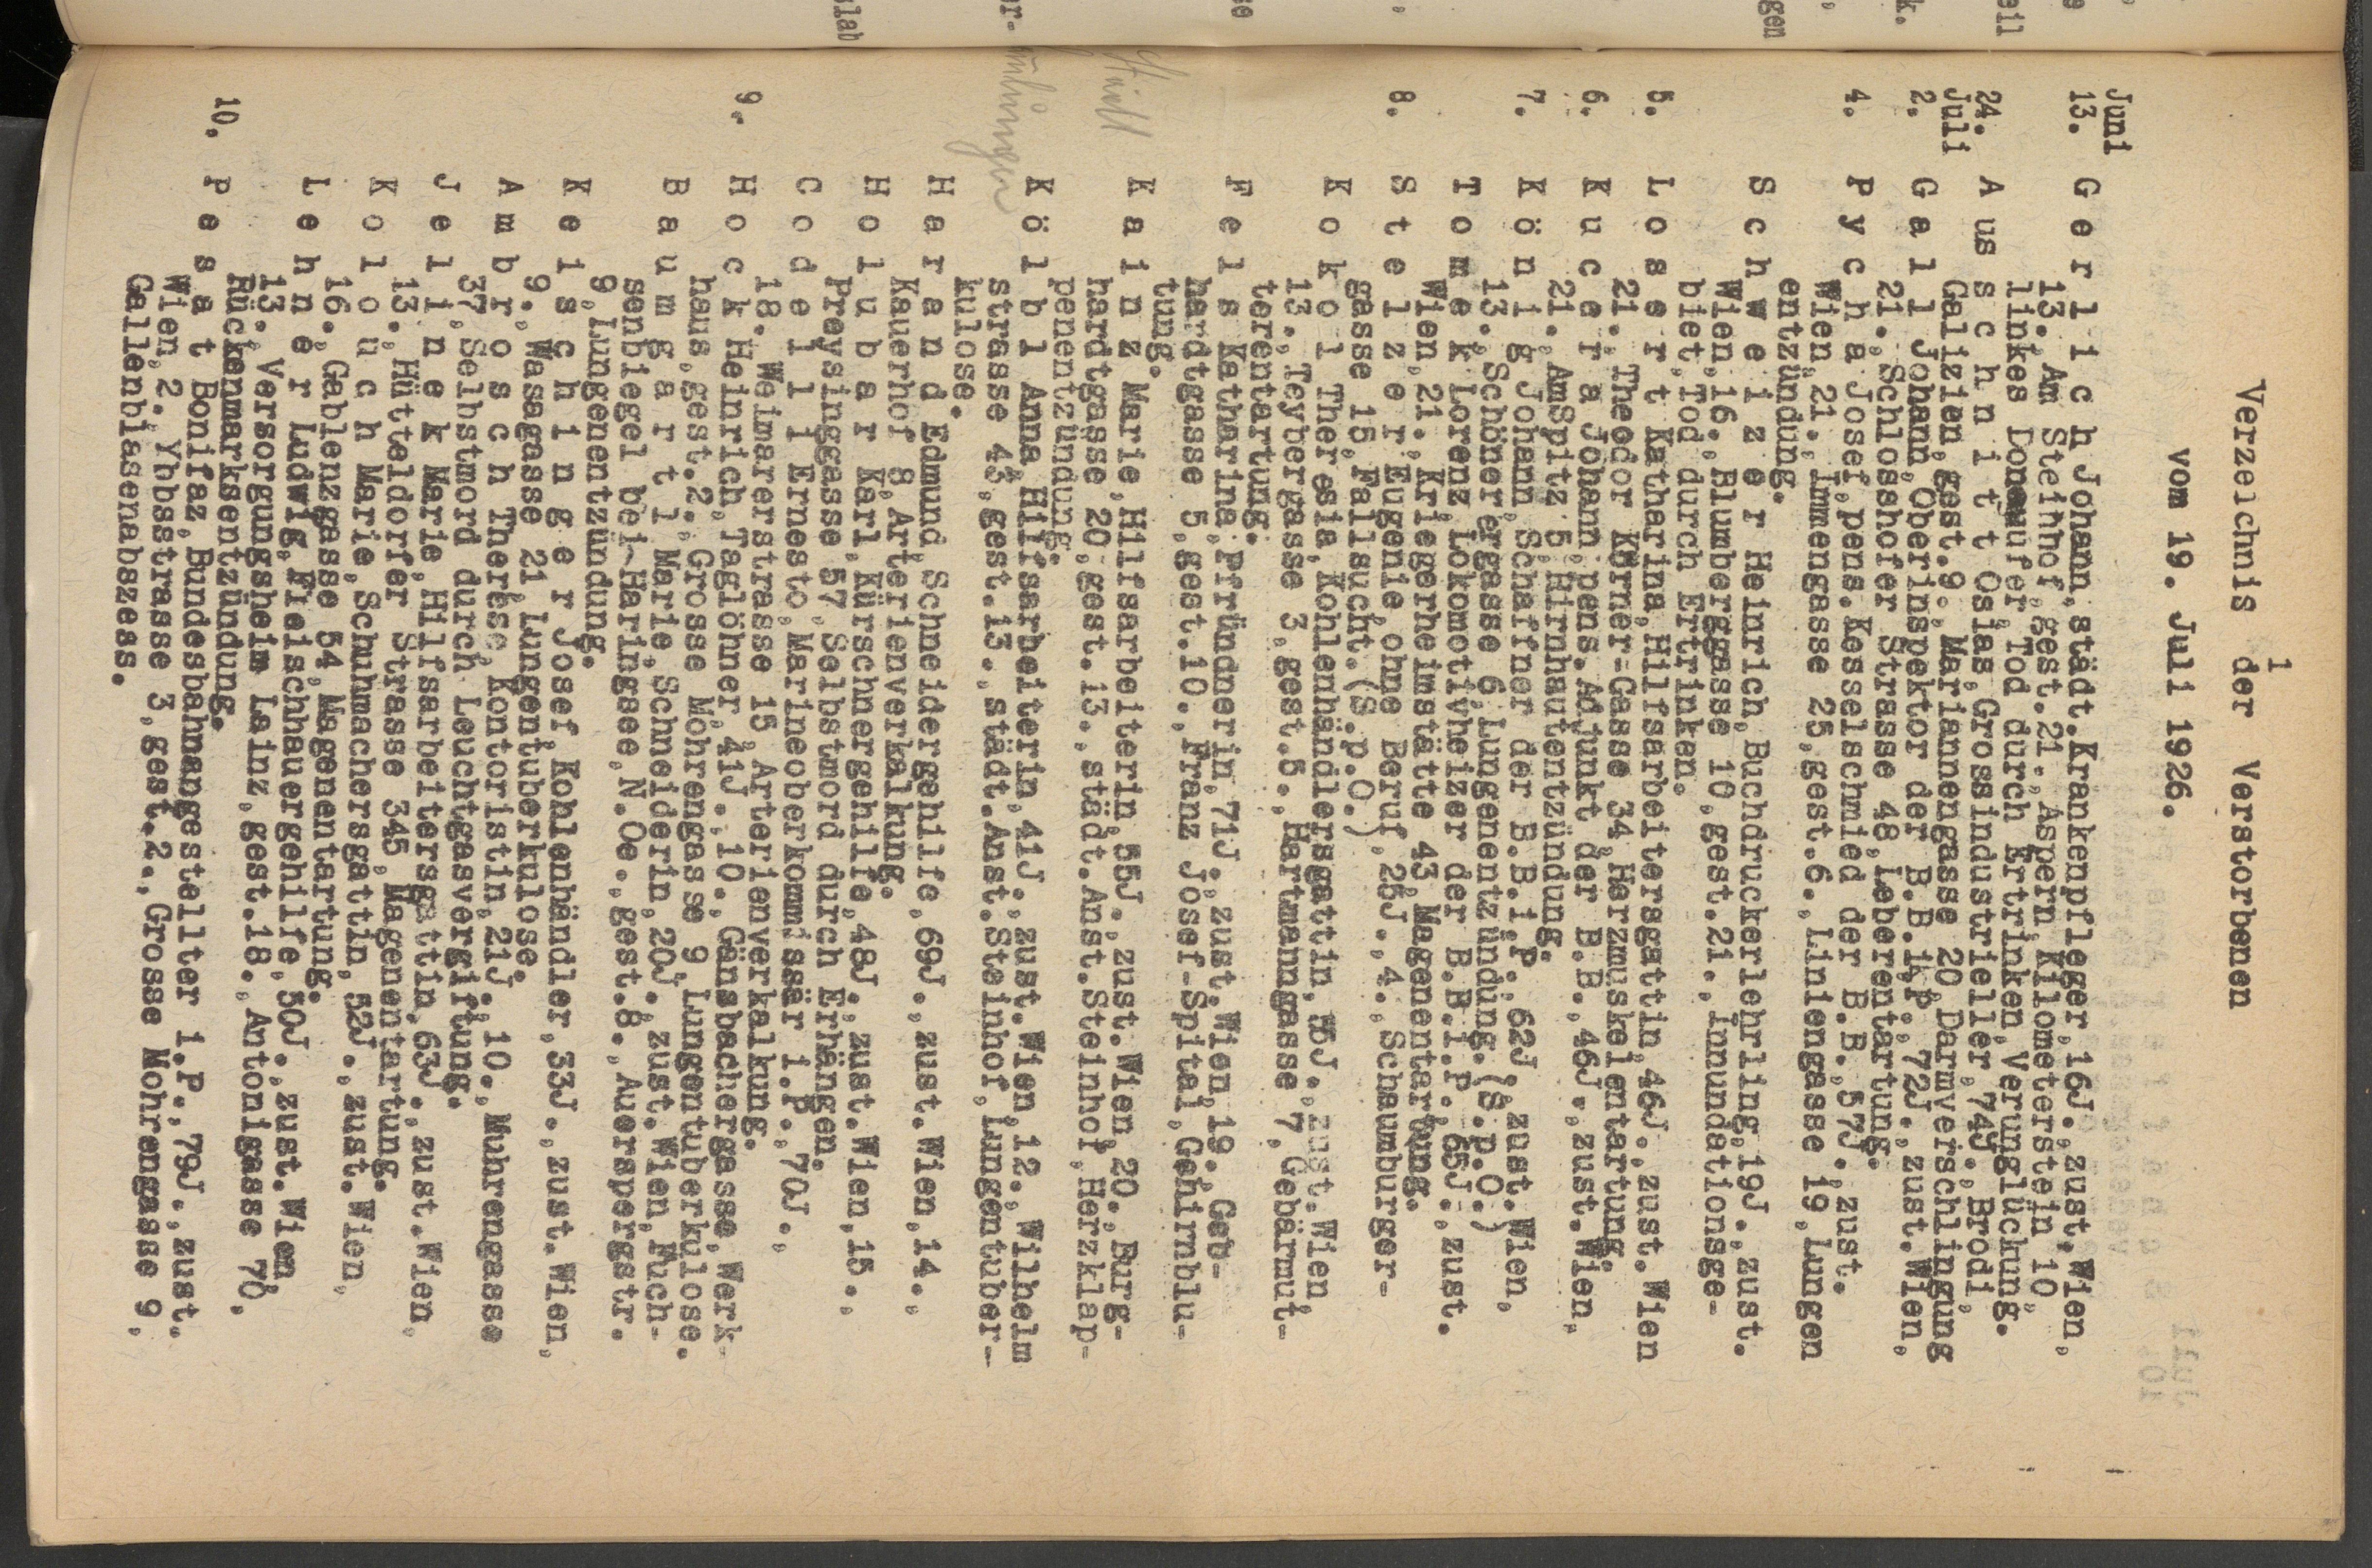 1
Verzeichnis der Verstorbenen
vom 19. Juli 1926.
Juni
13. G e r l i c h Johann,städt.Krankenpfleger,16J.,zust.Wien,
13.,Am Steinhof,gest.21.,Aspern,Kilometerstein 10,
linkes Donauufer,Tod durch Ertrinken,Verunglückung.
24. A us s c h n i t t Osias,Grossindustrieller,74J.,Brodi,
Galizien,gest.9.,Mariannengasse 20,Darmverschlingung
Juli
2. G a l l Johann,Oberinspektor der B.B.i.P.,72J.,zust.Wien,
21.,Schlosshofer Strasse 48,Leberentartung.
4. P y c h a Josef,pens.Kesselschmied der B.B.,57J.,zust.
Wien,21.,Immengasse 25,gest.6.,Liniengasse 19,Lungen
entzündung.
S c h w e i z e r Heinrich,Buchdruckerlehrling,19J.,zust.
Wien,16.,Blumberggasse 10,gest.21.,Innundationsge-
biet,Tod durch Ertrinken.
5. L o s e r t Katharina,Hilfsarbeitersgattin,46J.,zust.Wien
21.,Theodor Körner-Gasse 34,Herzmuskelentartung.
6. K u c e r a Johann,pens.Adjunkt der B.B.,46J.,zust.Wien,
21.,AmSpitz 5,Hirnhautentzündung.
7. K ö n i g Johann,Schaffner der B.B.i.P.,62J.,zust.Wien,
13.,Schönerergasse 6,Lungenentzündung.(S.P.O.)
T o m e k Lorenz,Lokomotivheizer der B.B.i.P.,65J.,zust.
Wien,21.,Kriegerheimstätte 43,Magenentartung.
8. S t e l z e r Eugenie,ohne Beruf,25J.,4.,Schaumburger-
gasse 15,Fallsucht.(S.P.O.)
K o k o l Theresia,Kohlenhändlersgattin,J.,zust.Wien,
13.,Teybergasse 3,gest.5.,Hartmanngasse 7,Gebärmut-
terentartung.
F e l s Katharina,Pfründnerin,71J.,zust.Wien,19.,Geb-
hardtgasse 5,gest.10.,Franz Josef-Spital,Gehirnblu-
tung.
K a i n z Marie,Hilfsarbeiterin,55J.,zust.Wien,20.,Burg-
hardtgasse 20,gest.13.,städt.Anst.Steinhof,Herzklap-
penentzündung.
K ö l b l Anna,Hilfsarbeiterin,41J.,zust.Wien,12.,Wilhelm
strasse 43,gest.13.,städt.Anst.Steinhof,Lungentuber-
kulose.
H a r a n d Edmund,Schneidergehilfe,69J.,zust.Wien,14.,
Kauerhof 8,Arterienverkalkung.
H o l u b a r Karl,Kürschnergehilfe,48J.,zust.Wien,15.,
Preysinggasse 57,Selbstmord durch Erhängen.
C o d e l l i Ernesto,Marineoberkommissär i.P.,70J.,
18.,Weimarerstrasse 15,Arterienverkalkung.
9. H o c k Heinrich,Taglöhner,41J.,10.,Gänsbachergasse,Werk-
haus,gest.2.,Grosse Mohrengasse 9,Lungentuberkulose.
B a u m g a r t l Marie,Schneiderin,20J.,zust.Wien,Puch-
senbiegel bei Haringsee,N.Oe.,gest.8.,Auerspergstr.
9,Lungenentzündung.
K e i s c h i n g e r Josef,Kohlenhändler,33J.,zust.Wien,
9.,Wasagasse 21,Lungentuberkulose.
A m b r o s c h Therese,Kontoristin,21J.,10.,Muhrengasse
37,Selbstmord durch Leuchtgasvergiftung.
J e l i n e k Marie,Hilfsarbeitersgattin,63J.,zust.Wien,
13.,Hütteldorfer Strasse 345,Magenentartung.
K o l o u c h Marie,Schuhmachersgattin,52J.,zust.Wien,
16.,Gablenzgasse 54,Magenentartung.
L e h n e r Ludwig,Fleischhauergehilfe,50J.,zust.Wien,
13.,Versorgungsheim Lainz,gest.18.,Antonigasse 70,
Rückenmarksentzündung.
10. P e s a t Bonifaz,Bundesbahnangestellter i.P.,79J.,zust.
Wien,2.,Ybbsstrasse 3,gest.2.,Grosse Mohrengasse 9,
Gallenblasenabszess.